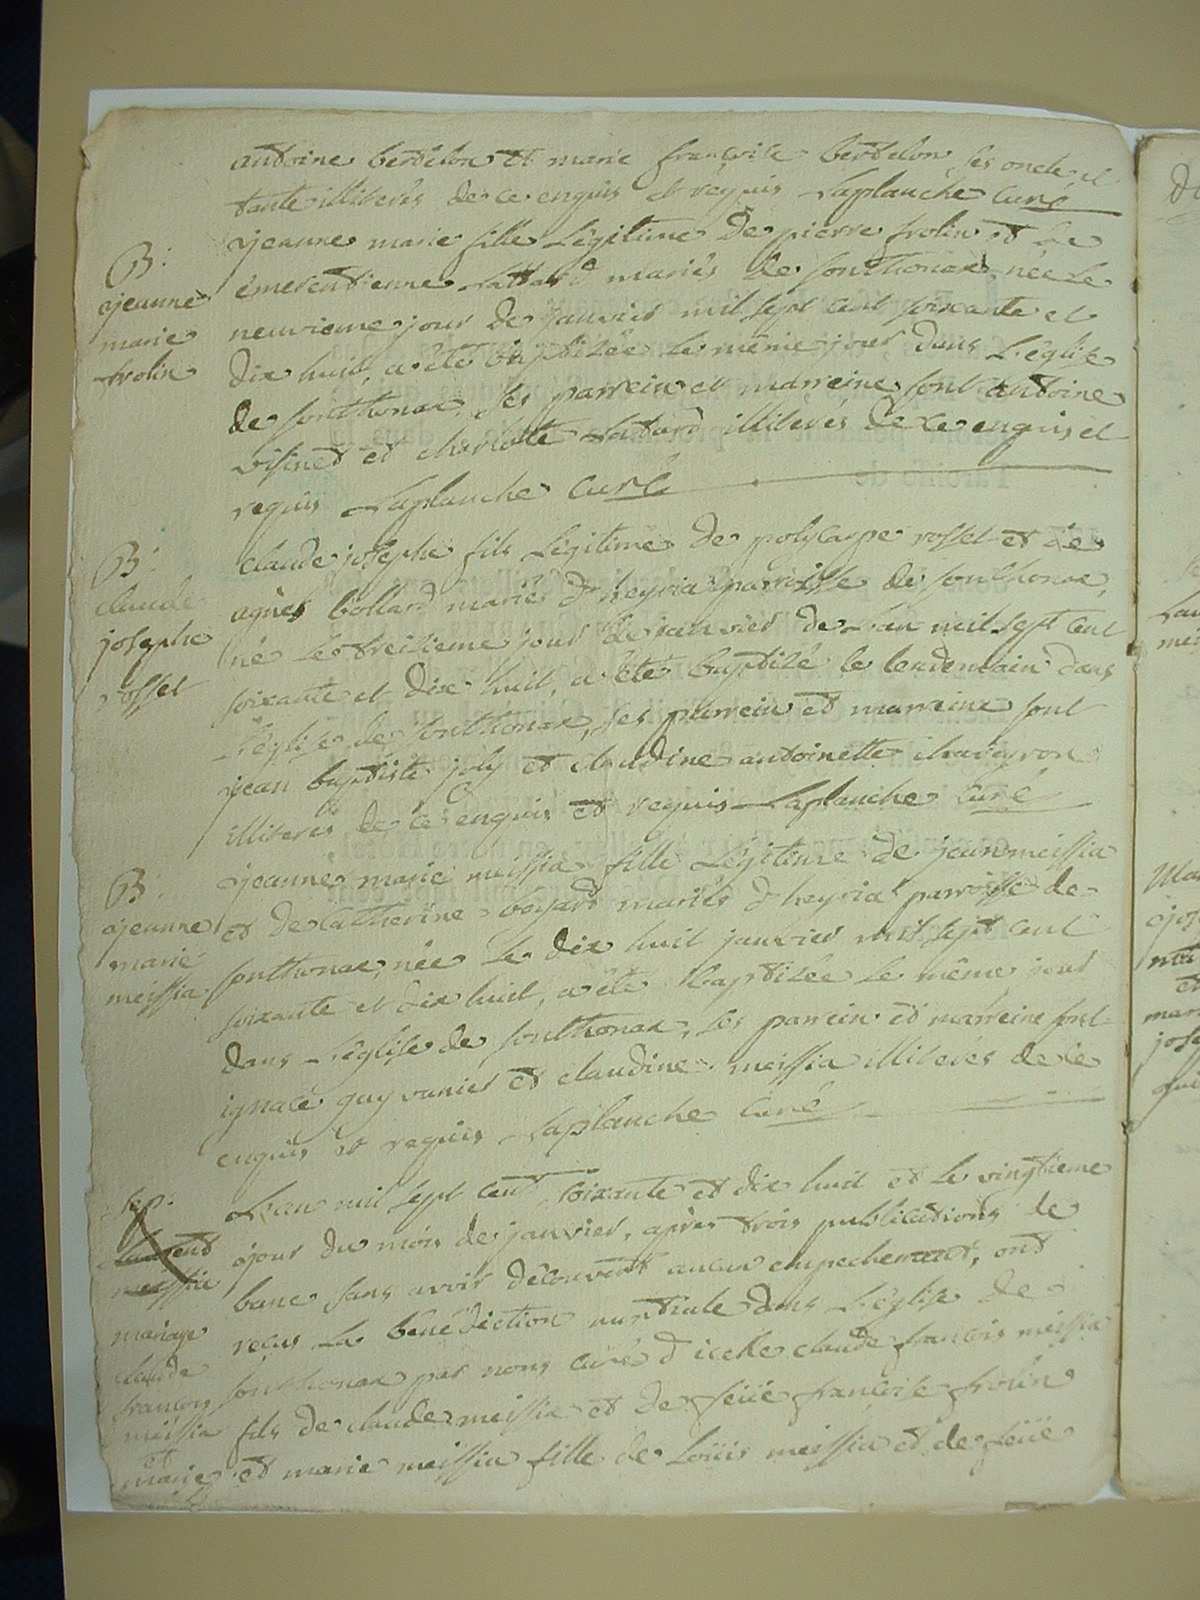 antoine bertelon et marie françoise bertelon ses oncle et
tante illiterés de ce enquis et requis Laplanche Curé
B:
jeanne
marie
frolin
jeanne marie fille Légitime De pierre frolin et de
émerentienne Lattard mariés de sonthonax née Le
neuvieme jour De janvier mil sept cent soixante et
dix huit, a été baptisée Le même jour dans L'église
de sonthonax, ses parrein et marreine sont antoine
et charlotte illiterés de ce enquis et
requis Laplanche Curé
B:
claude
josephe
rosset
claude josephe fils Légitime de polycarpe rosset et de
agnès bollard mariés d'heyria parroisse de sonthonax,
né Le treizieme jour de janvier de L'an mil sept cent
soixante et dix huit, a été baptisé le lendemain dans
L'église de sonthonax, ses parrein et marreine sont
jean baptiste joly et claudine antoinette
illiterés de ce enquis et requis Laplanche Curé
B:
jeanne
marie
meissia
jeanne marie meissia fille Légitime de jean meissia
et de catherine mariés d'heyria parroisse de
sonthonax, née Le dix huit janvier mil sept cent
soixante et dix huit, a été baptisée Le même jour
dans L'église de sonthonax, ses parrein et marreine sont
ignace et claudine meissia illiterés de ce
enquis et requis Laplanche Curé
sep.
laurent
meissia
mariage
claude
francois
meissia
et
marie
L'an mil sept cent soixante et dix huit et le vingtieme
jour du mois de janvier, après trois publications de
banc sans avoir découvert aucun empechement, ont
recus La bénédiction nuptiale dans L'église de
sonthonax par nous curé d'icelle claude francois meissia
fils de claude meissia et de feüe françoise frolin
et marie meissia fille de Loüis meissia et de feüe